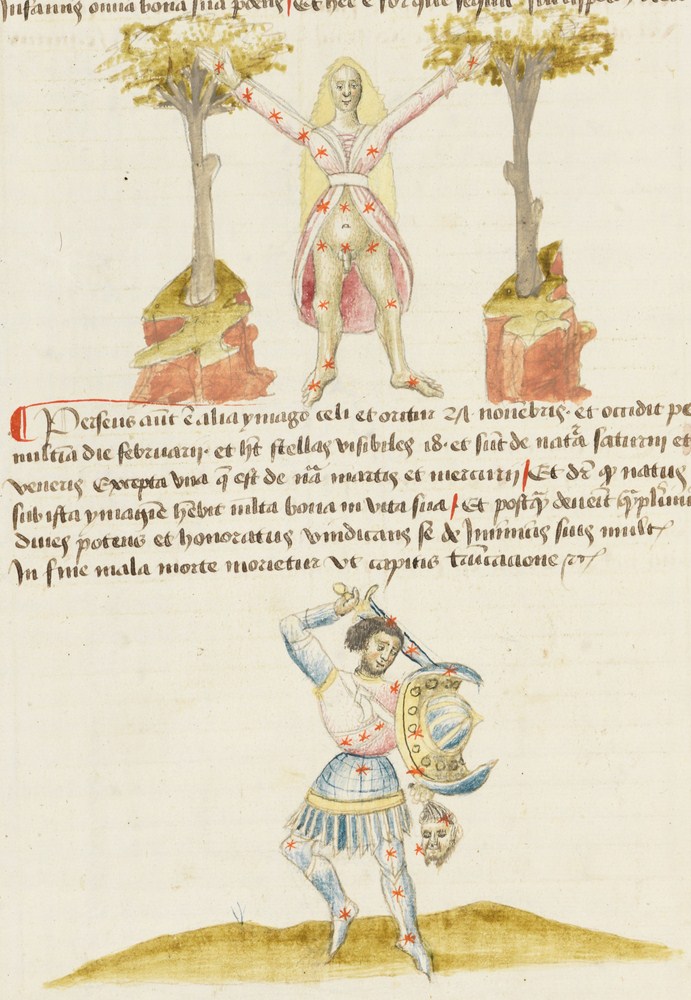 infamus omnia bona sua pdens Et hec e sor que sequit
Perseus aut e alia ymago celi et oritur 24 novẽbris· et occidit pe
multia die februarii· et ht stellas visibiles 18· et sũt de natã saturni et
veneris Excepta una q̃ est de nã martis et mercurii Et dr̃ qp natus
sub ista ymagĩe hẽbit multa bona in vita sua Et postq̃ deveĩt
dives potens et honoratus vindicans se de Inimicis suis mult
In fine mala morte morietur ut capitis trũcacione